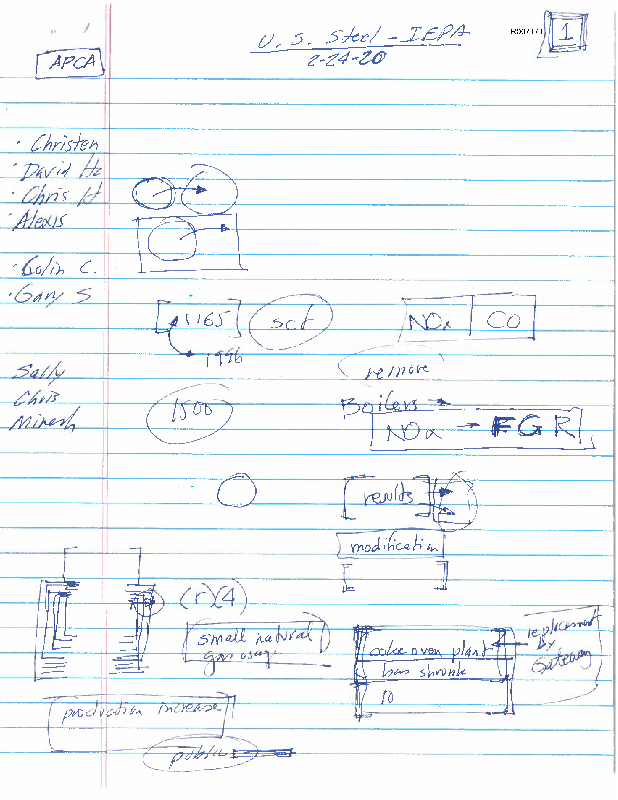 U. S. Steel - IEPA
1
2-24-20
APCA
· Christen
· David He
· Chris H
· Alexis
· Colin C.
· Gary S
1165
scf
NOx CO
1996
remove
Sally
Chris
Minesh
1500
Boilers →
NOx → FGR
results
modification
(r)(4)
small natural
gas usage
coke oven plant
has shrunk
10
replacement
by
Gateway
production increase
public